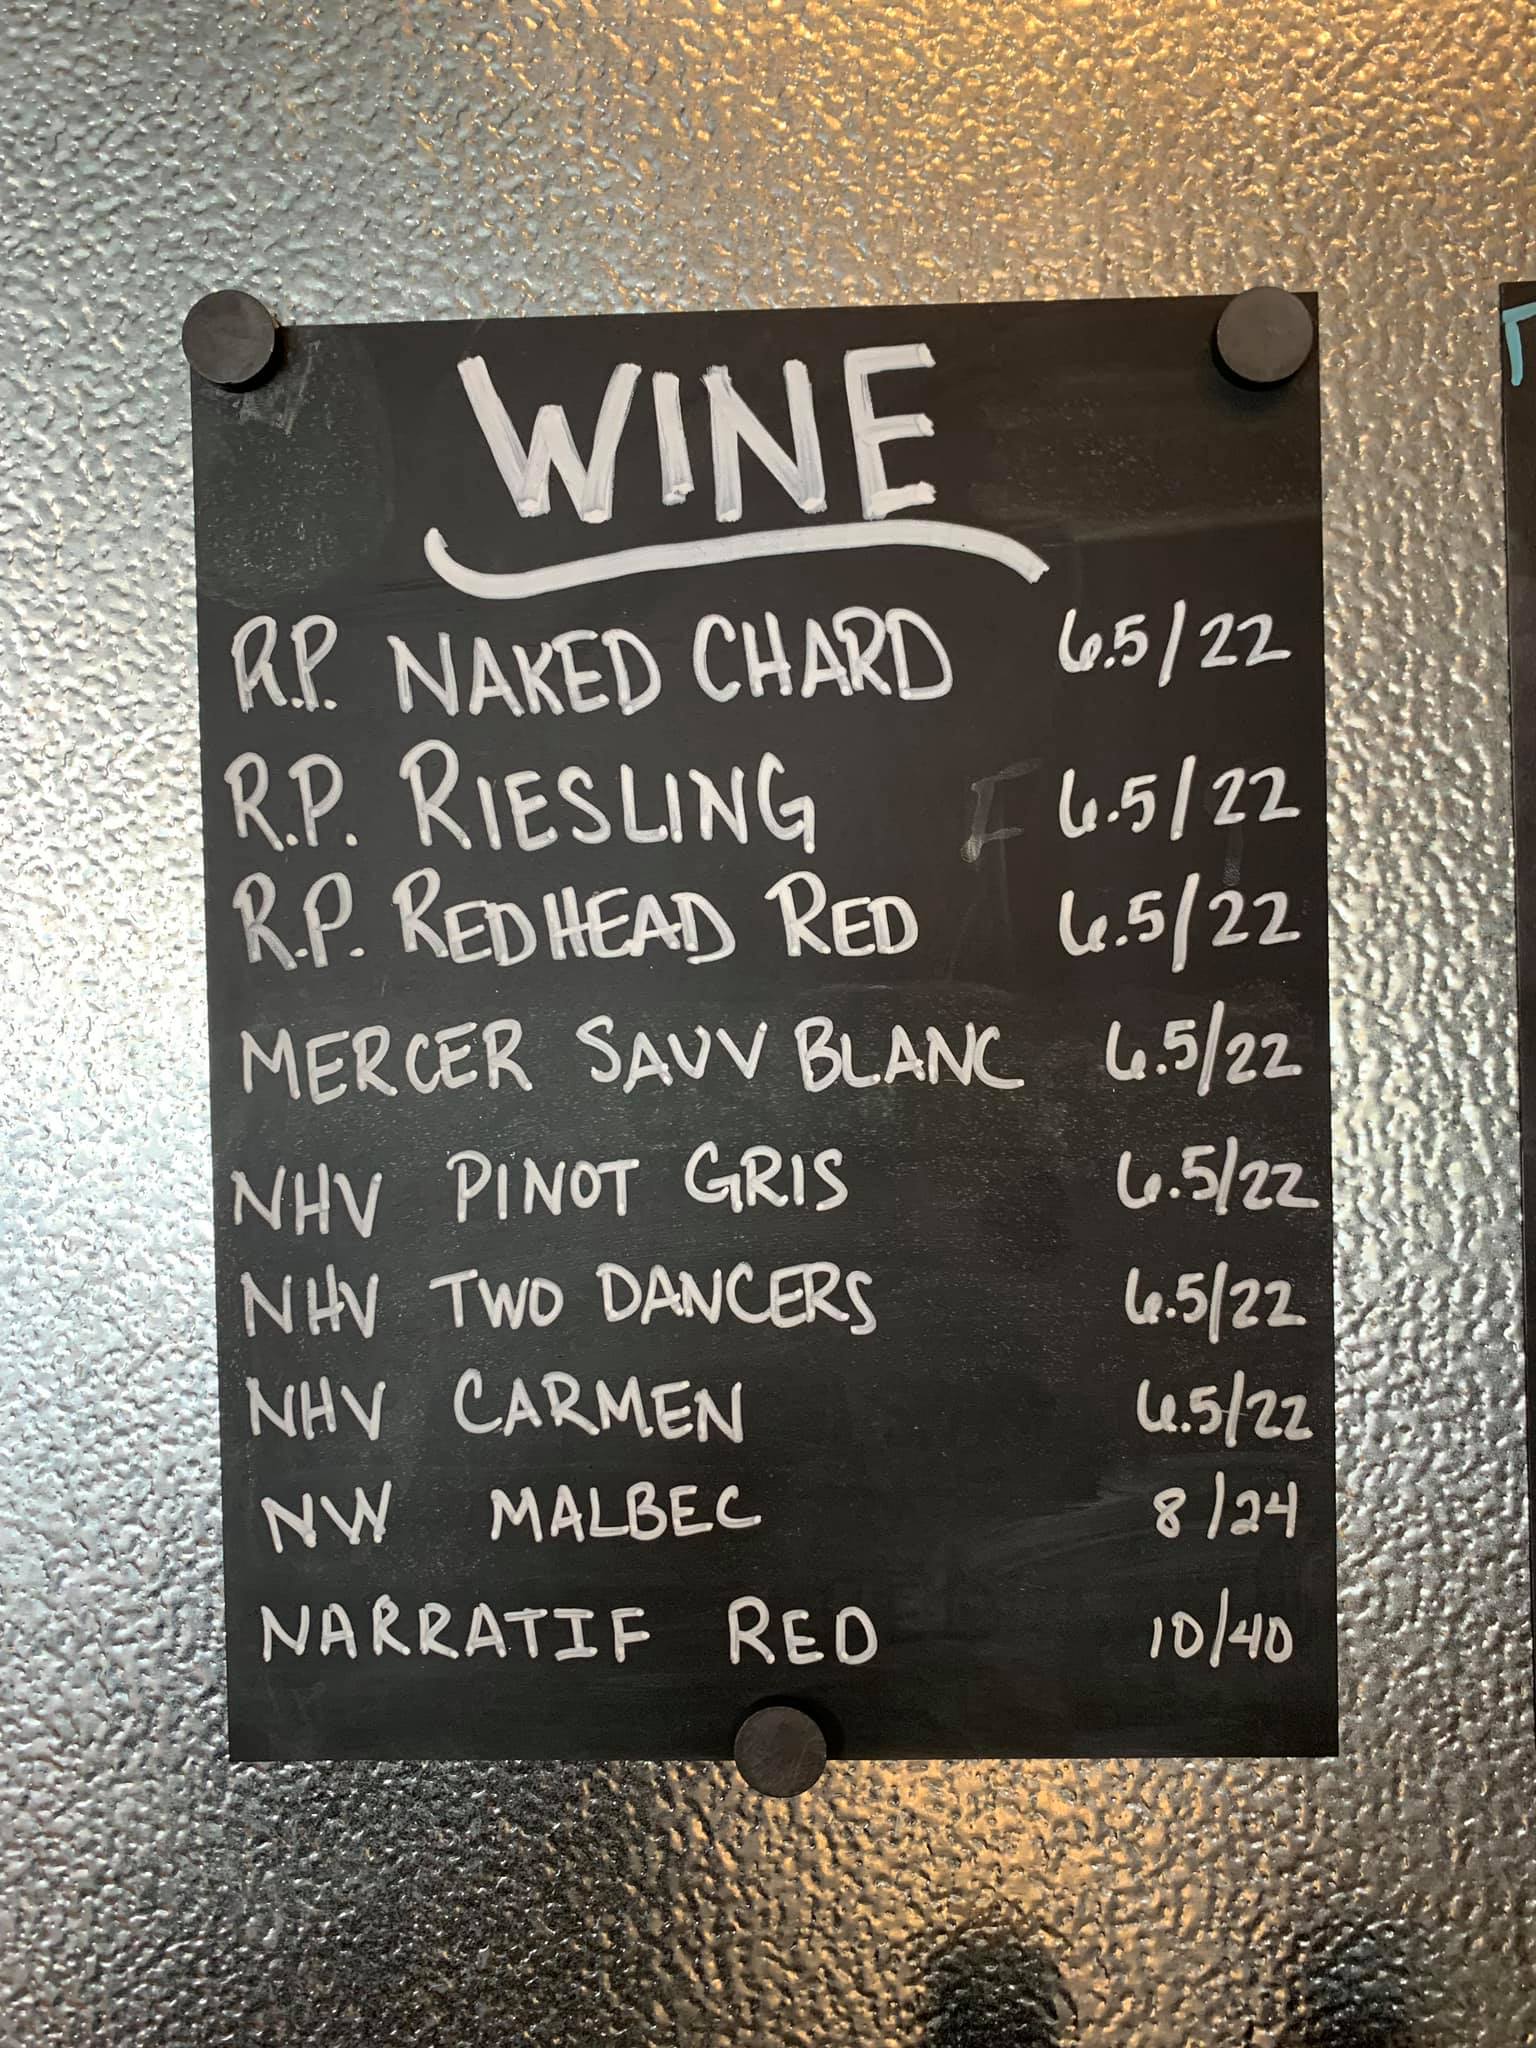 WINE
R.P. NAKED CHARD 6.5/22
R.P. RIESLING 6.5/22
R.P. REDHEAD RED 6.5/22
MERCER SAUV BLANC 6.5/22
NHV PINOT GRIS 6.5/22
NHV TWO DANCERS 6.5/22
NHV CARMEN 6.5/22
NW MALBEC 8/24
NARRATIF RED 10/40